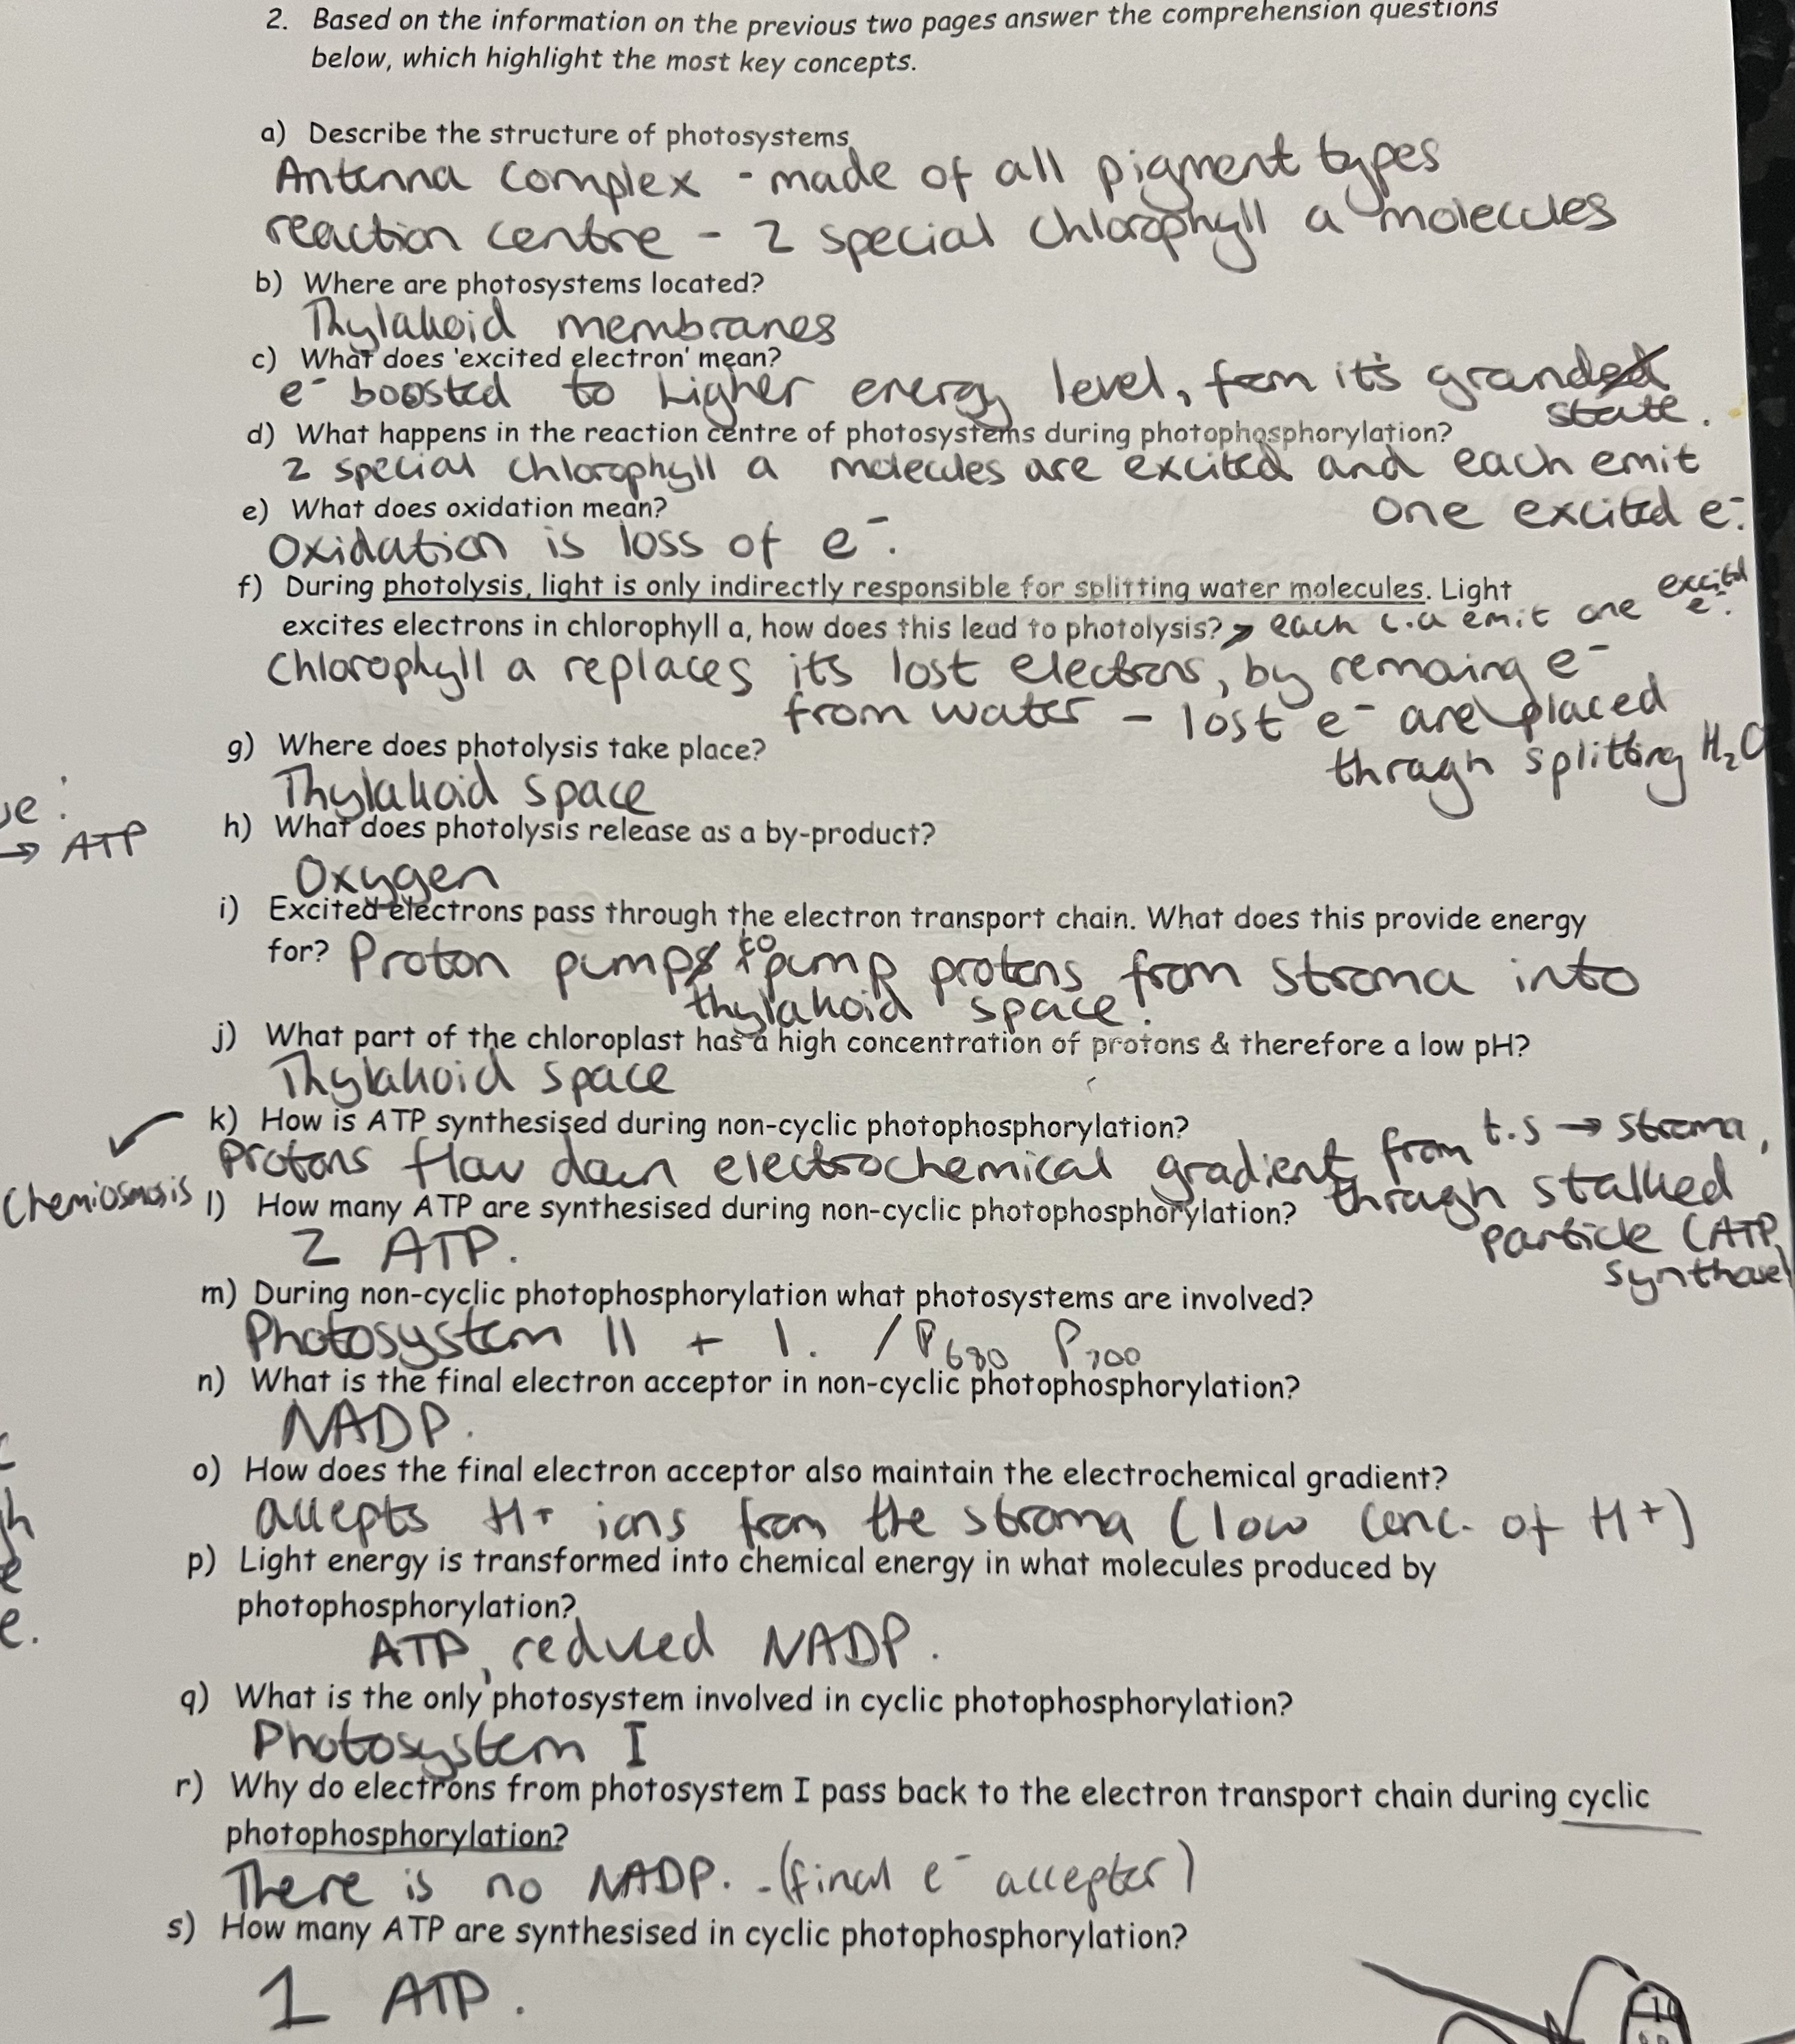 2. Based on the information on the previous two pages answer the comprehension questions
below, which highlight the most key concepts.
a) Describe the structure of photosystems
Antenna complex - made of all pigment types
reaction centre - 2 special chlorophyll a molecules
b) Where are photosystems located?
Thylakoid membranes
c) What does 'excited electron' mean?
e⁻ boosted to higher energy level, from it's ground
state.
d) What happens in the reaction centre of photosystems during photophosphorylation?
2 special chlorophyll a molecules are excited and each emit
one excited e⁻.
e) What does oxidation mean?
Oxidation is loss of e⁻.
f) During photolysis, light is only indirectly responsible for splitting water molecules. Light
excites electrons in chlorophyll a, how does this lead to photolysis? → each c.a emit one excited e⁻.
Chlorophyll a replaces its lost electrons, by removing e⁻
from water - lost e⁻ are placed
through splitting H₂O
g) Where does photolysis take place?
Thylakoid space
h) What does photolysis release as a by-product?
→ ATP
Oxygen
i) Excited electrons pass through the electron transport chain. What does this provide energy
for? Proton pump to pump protons from stroma into
thylakoid space.
j) What part of the chloroplast has a high concentration of protons & therefore a low pH?
Thylakoid space
k) How is ATP synthesised during non-cyclic photophosphorylation?
Protons flow down electrochemical gradient from t.s → stroma,
through stalked
particle (ATP
synthase)
Chemiosmosis
l) How many ATP are synthesised during non-cyclic photophosphorylation?
2 ATP.
m) During non-cyclic photophosphorylation what photosystems are involved?
Photosystem II + I. / P680 P700
n) What is the final electron acceptor in non-cyclic photophosphorylation?
NADP.
o) How does the final electron acceptor also maintain the electrochemical gradient?
accepts H+ ions from the stroma (low conc. of H+)
p) Light energy is transformed into chemical energy in what molecules produced by
photophosphorylation?
ATP, reduced NADP.
q) What is the only photosystem involved in cyclic photophosphorylation?
Photosystem I
r) Why do electrons from photosystem I pass back to the electron transport chain during cyclic
photophosphorylation?
There is no NADP. - (final e⁻ accepter)
s) How many ATP are synthesised in cyclic photophosphorylation?
1 ATP.